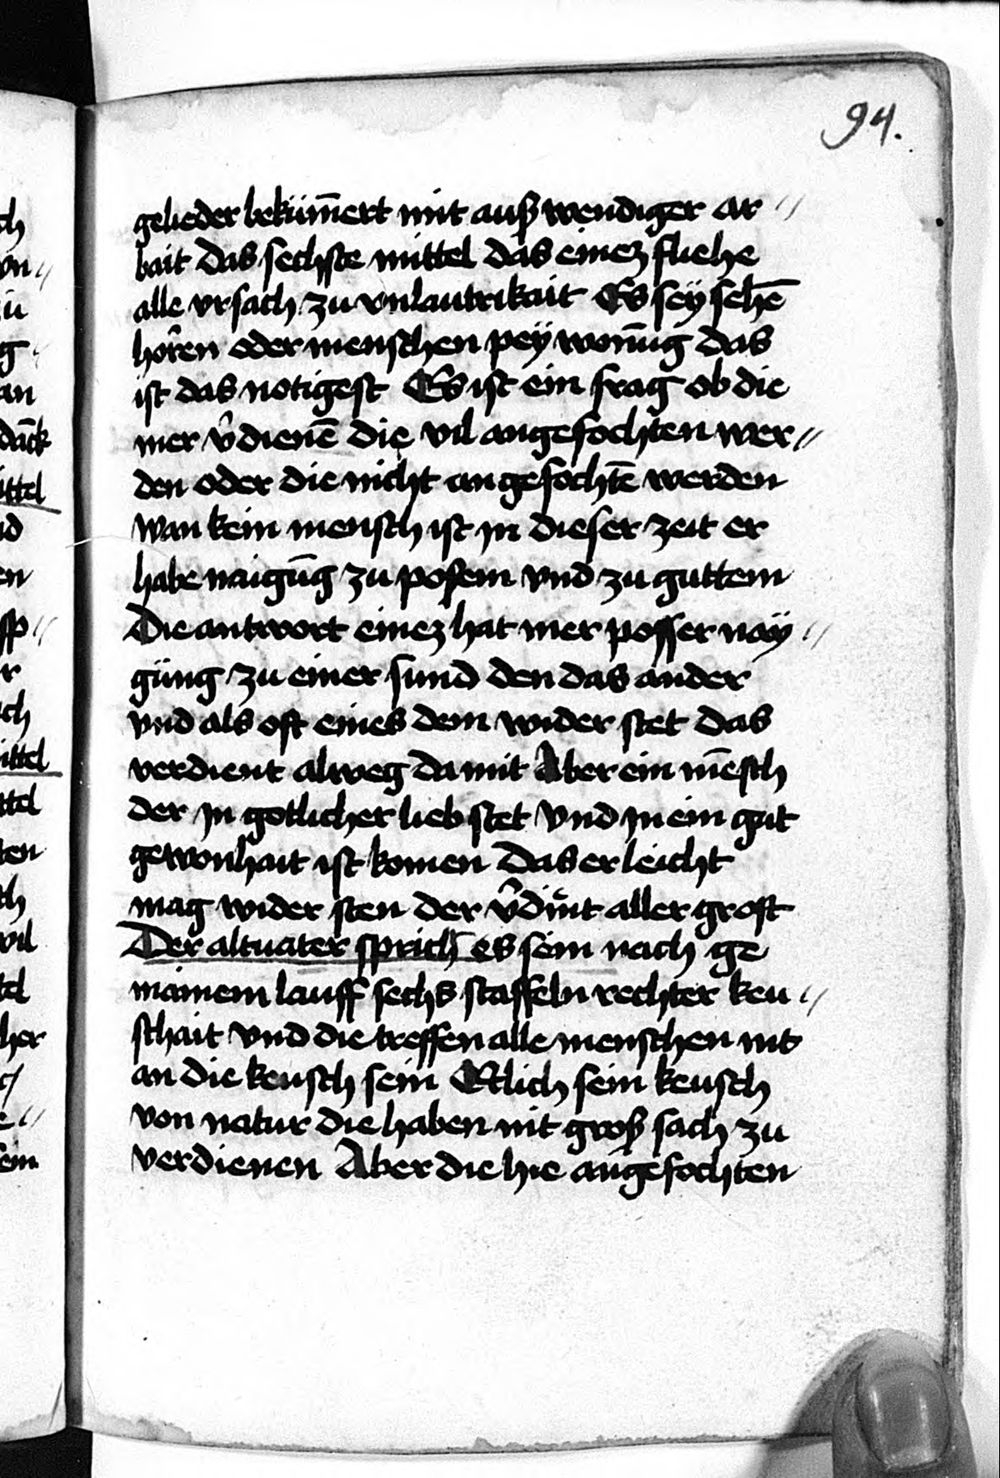 94.
gelieder bekūm̄ert mit auß wendiger ar //
bait das sechste mittel das einez fliehe
alle vrsach zu vnlautrikait Es sey sehē
horen oder menschen pey wonūg das
ist das notigest Es ist ein frag ob die
mer v̂dienē die vil angefochten wer //
den oder die nicht an gefochtē werden
Wan kein mensch ist jn dieser zeit er
habe naigūg zu posem vnd zu guttem
Die antwort einez hat mer posser nay //
gung zu einer sund den das ander
vnd als oft eines dem wider stet das
verdient alweg da mit Aber ein mēsch
der jn gotlicher lieb stet Vnd jn ein gut
gewonhait ist komen Das er leicht
mag wider sten der v̂dint aller grost
Der altuater sprich es sein nach ge
mainem lauff sechs staffeln rechter keu //
schait Vnd die treffen alle menschen nit
an die keusch sein Etlich sein keusch
von natur die haben nit groß sach zu
verdienen Aber die hie angefochten
ch
on //
zu
g
an
dāck
ittel
nd
en
sp //
r
ich
ittel
ttel
ten
ch
vil
tel
her
e //
sein